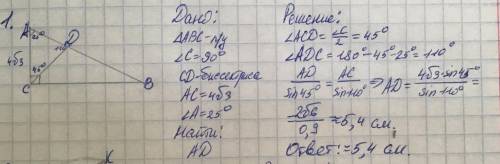 1.
A
25°
D
110°
4√3
45°
C
B
Дано:
△ABC - п/у
∠C = 90°
CD - биссектриса
AC = 4√3
∠A = 25°
Найти:
AD
Решение:
∠ACD = ∠C/2 = 45°
∠ADC = 180° - 45° - 25° = 110°
AD/sin45° = AC/sin110° ⇒ AD = 4√3·sin45°/sin110° =
2√6/0,9 ≈ 5,4 см.
Ответ: ≈ 5,4 см.
K